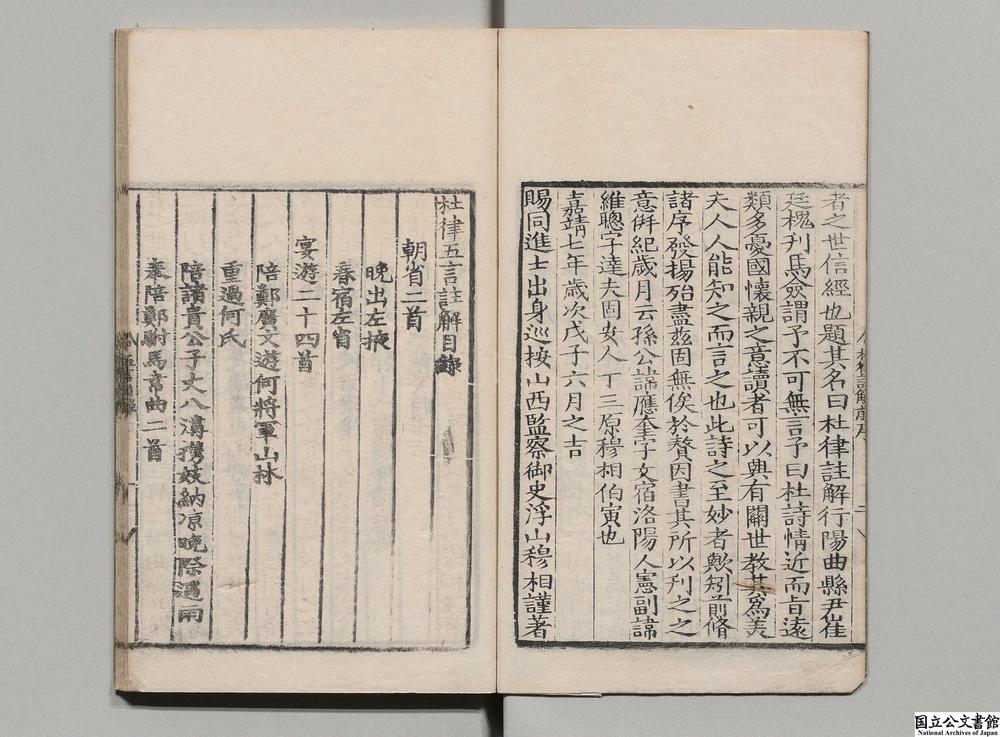 者之世信經也題其名曰杜律註解行陽曲縣尹崔
廷槐刋焉僉謂予不可無言予曰杜詩情近而旨遠
類多憂國懷親之意讀者可以興有關世教其為美
夫人人能知之而言之也此詩之至妙者歟矧前脩
諸序發揚殆盡兹固無俟於贅因書其所以刋之之
意併紀歲月云孫公諱應奎字文宿洛陽人憲副諱
維聰字達夫固安人丁三原穆相伯寅也
嘉靖七年歲次戊子六月之吉
賜同進士出身巡按山西監察御史浮山穆相謹著
杜律五言註解目錄
朝省二首
晚出左掖
春宿左省
宴遊二十四首
陪鄭廣文遊何將軍山林
重過何氏
陪諸貴公子丈八溝攜妓納凉晚際遇雨
奉陪鄭駙馬韋曲二首
国立公文書館
National Archives of Japan